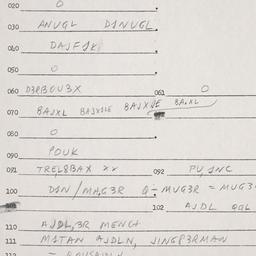 020 0
030 ANUGL DJNUGL
040 DAJFJK
050 0
060 D3RBOU3X 061 0
070 BAJXL BAJXJLE BAJXJE BAJXL
080 0
090 POUK
091 TREL8BAX XX 092 PU,JNC
100 DJN/MA,G3R = MUG3R = MUG3
102 AJDL
110 AJDL,3R MENCH
111 MJTAN AJDLN, JINGP3RMAN